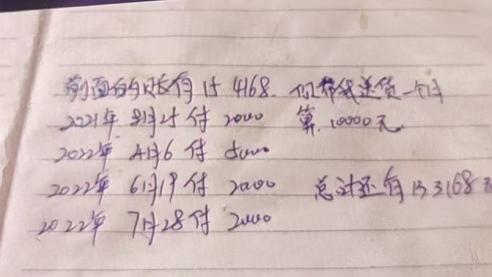 前面的账有15 4168. 你帮我送货一个月
2021年 8月25 付 2000 算10000元
2022年 4月6 付 5000
2022年 6月19 付 2000 总计还有133168元
2022年 7月28 付 2000